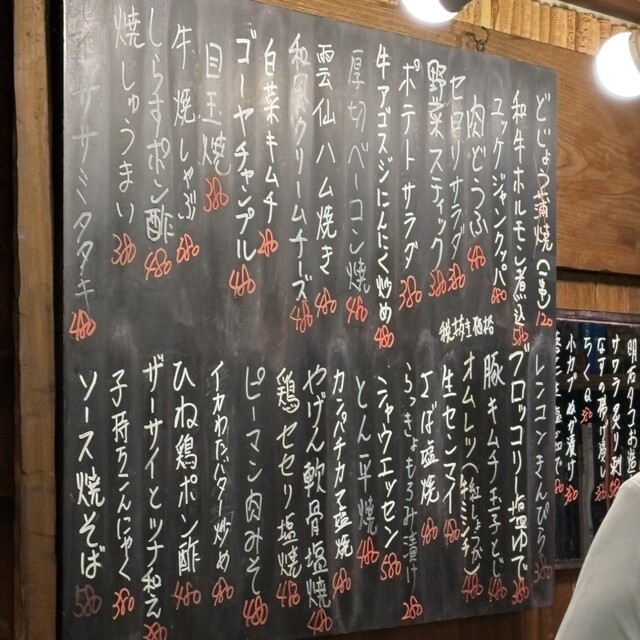 どじょう蒲焼(一串) 120
和牛ホルモン煮込 580
ユッケジャンクッパ 680
肉どうふ 480
セロリサラダ 380
野菜スティック 380
ポテトサラダ 380
牛アゴスジにんにく炒め 480
厚切ベーコン焼 480
雲仙ハム焼き 480
和風クリームチーズ 480
白菜キムチ 280
ゴーヤチャンプル 480
目玉焼 380
牛焼しゃぶ 680
しらすポン酢 480
焼しゅうまい 380
ササミタタキ 480
税抜き価格
レンコンきんぴら 380
ブロッコリー塩ゆで 380
豚キムチ玉子とじ 480
オムレツ(紅しょうが 480
生センマイ 480
さば塩焼 480
らっきょもろみ漬け 280
シャウエッセン 580
とん平焼 480
カンパチカマ塩焼 380
やげん軟骨塩焼 480
鶏セセリ塩焼 480
ピーマン肉みそ 480
イカわたバター炒め 480
ひね鶏ポン酢 480
ザーサイとツナ和え 380
子持ちこんにゃく 380
ソース焼そば 580
サワラ
ちくわ
小カブぬか漬け